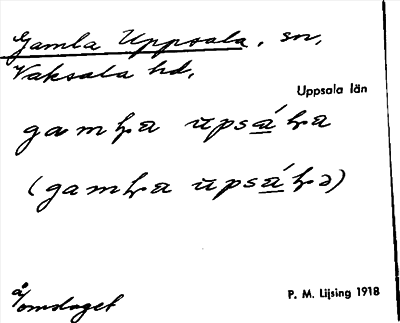 Gamla Uppsala, sn,
Vaksala hd,
Uppsala län
gamḷa ūpsáḷa
(gamḷa ūpsáḷə)
å/omslaget
P. M. Lijsing 1918